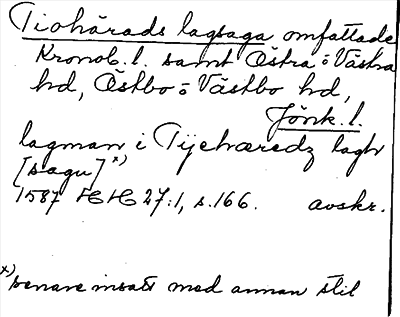 Tiohärads lagsaga omfattade
Kronob. l. samt Östra o Västra
hd, Östbo o Västbo hd,
Jönk. l.
lagman i Tijehæredz lagh
[sagu] x)
1587 HH 27:1, s. 166. avskr.
x) senare insatt med annan stil